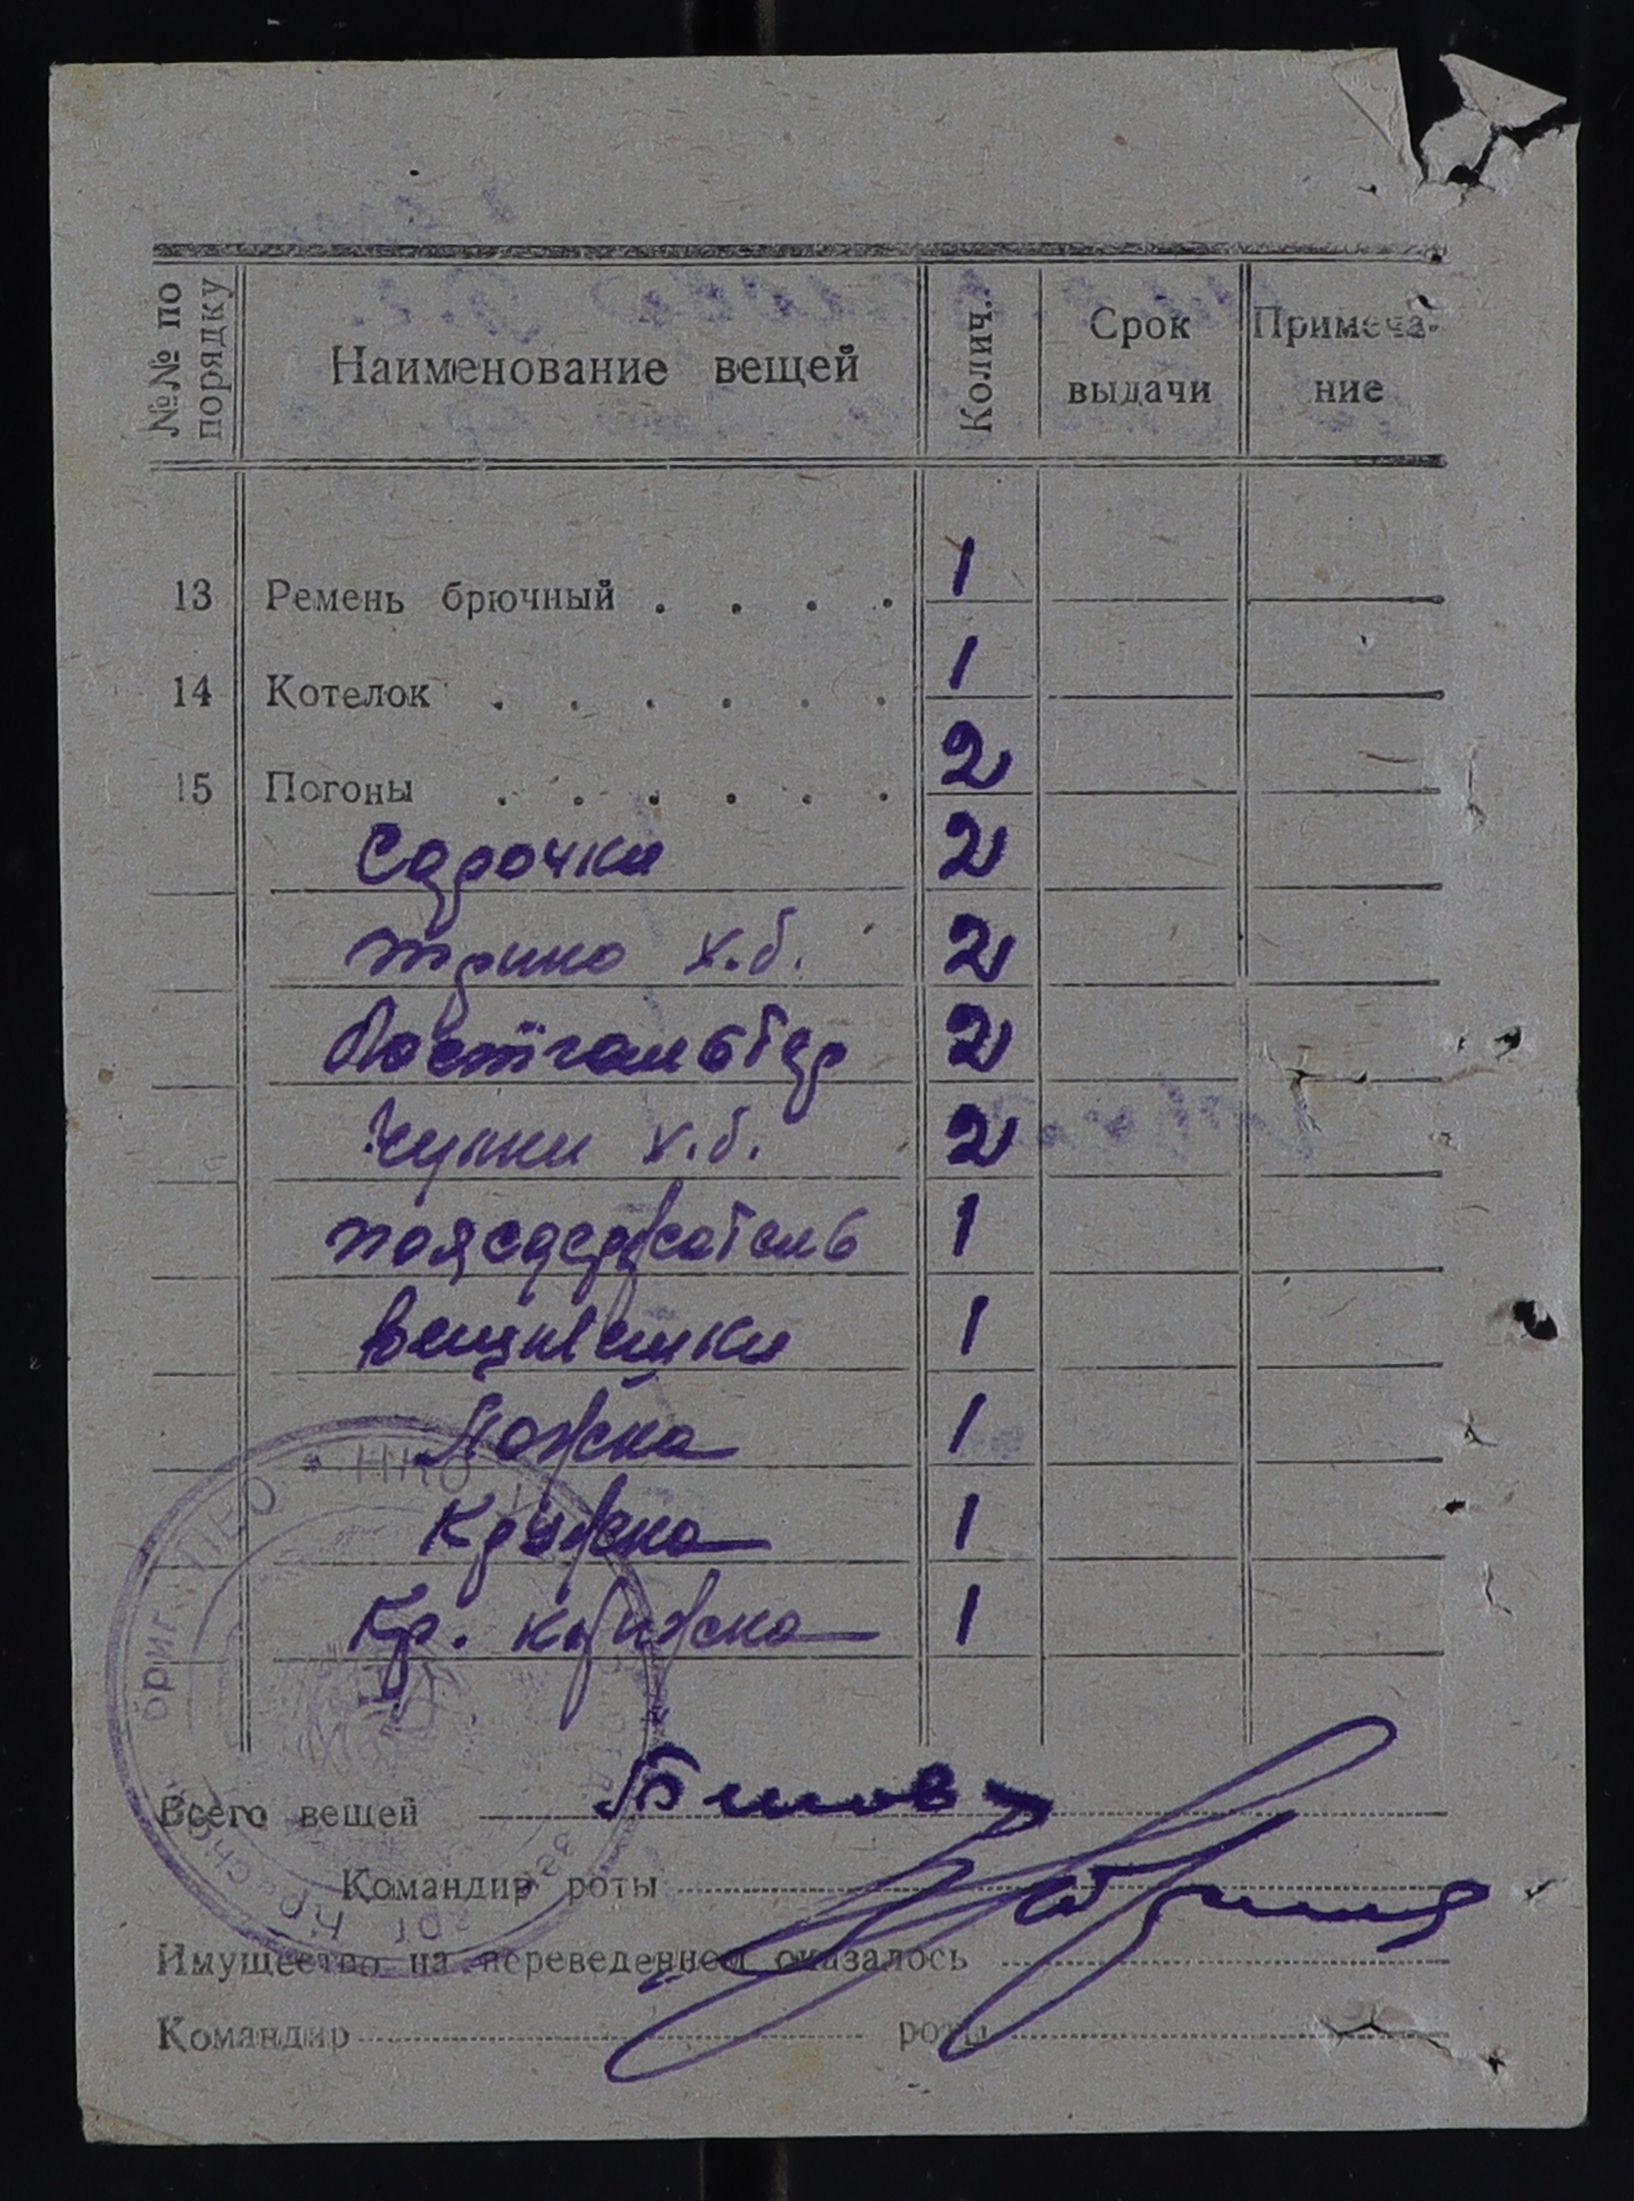 №№ по порядку Наименование вещей Колич. Срок выдачи Примеча-ние
13 Ремень брючный . . . . 1
14 Котелок . . . . . . 1
15 Погоны . . . . . . 2
Сорочки 2
трико х.б. 2
Бюстгальтер 2
Чулки х.б. 2
поясодержатель 1
вещмешки 1
Ложка 1
Кружка 1
Кр. книжка 1
Всего вещей
Командир роты
Имущество на переведенном оказалось
Командир роты